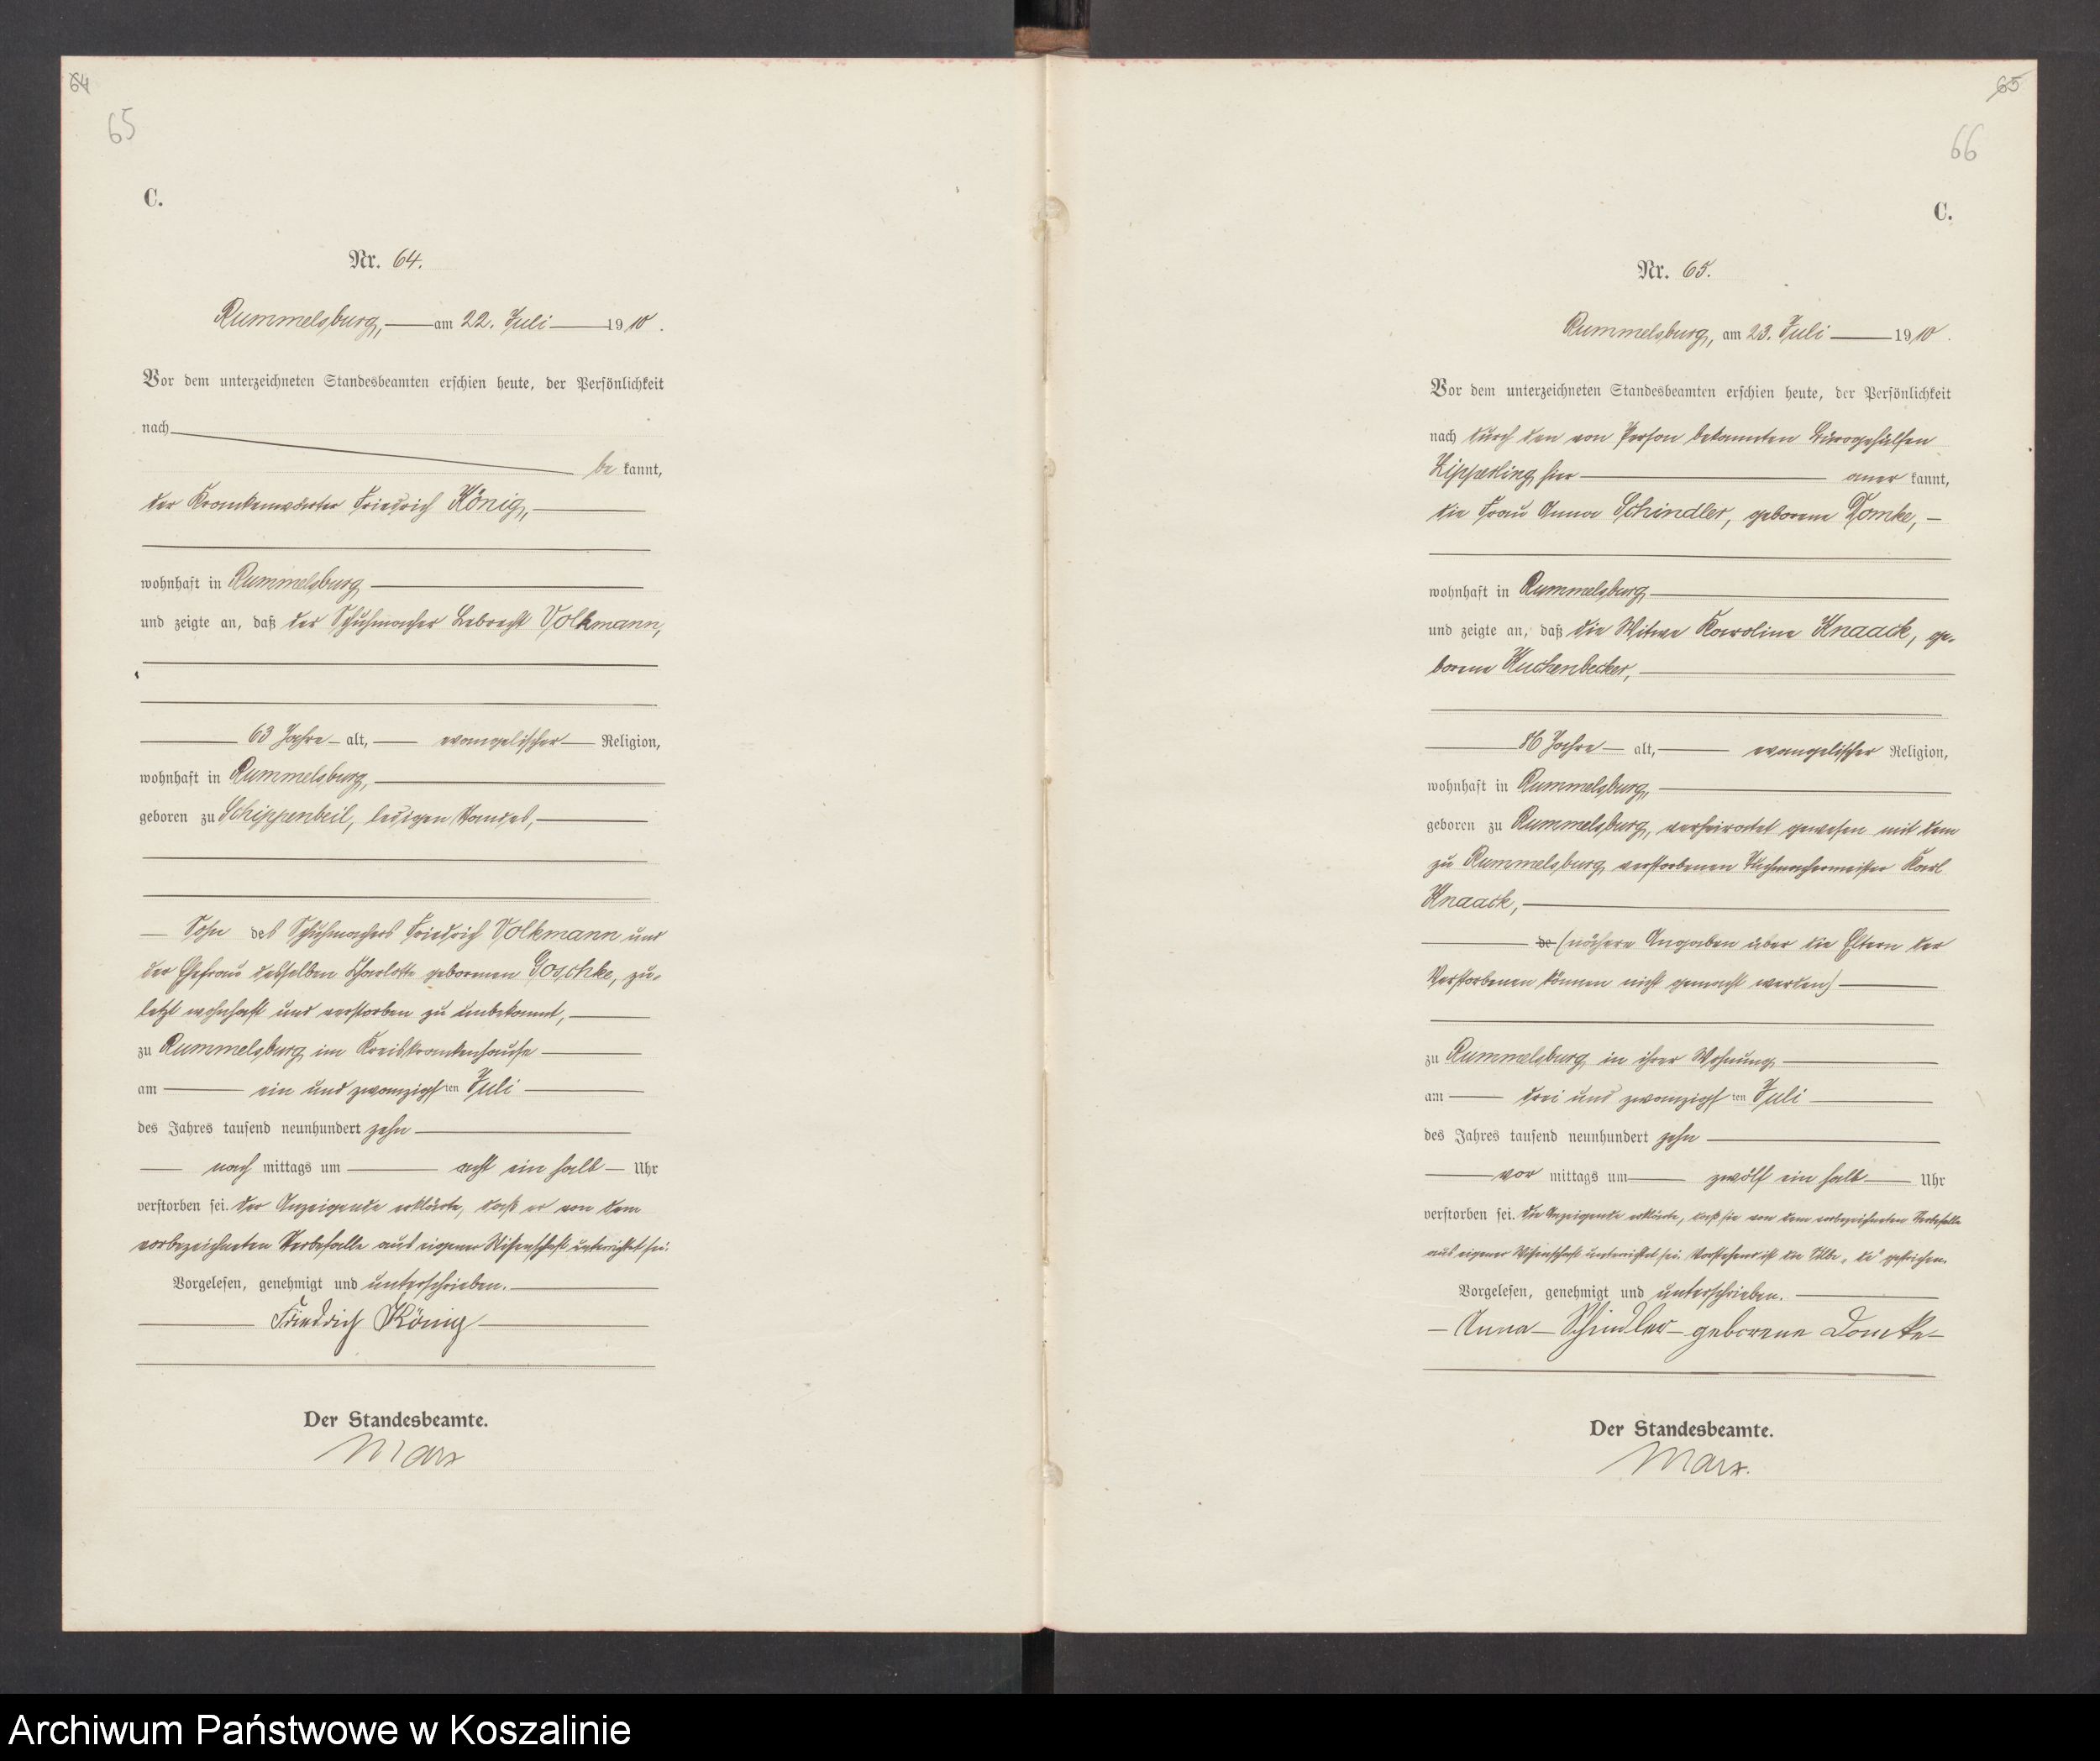 64
65
C.
Nr. 64.
Rummelsburg, am 22. Juli 1910.
Vor dem unterzeichneten Standesbeamten erschien heute, der Persönlichkeit
nach
be kannt,
der Krankenwärter Friedrich König,
wohnhaft in Rummelsburg
und zeigte an, daß der Schuhmacher Lebrecht Volkmann,
63 Jahre alt, evangelischer Religion,
wohnhaft in Rummelsburg,
geboren zu Schippenbeil, ledigen Standes,
Sohn des Schuhmachers Friedrich Volkmann und
der Ehefrau desselben Charlotte geborenen Goschke, zu-
letzt wohnhaft und verstorben zu unbekannt,
zu Rummelsburg im Kreiskrankenhause
am ein und zwanzigsten Juli
des Jahres tausend neunhundert zehn
nach mittags um acht ein halb Uhr
verstorben sei. Der Anzeigende erklärte, daß er von dem
vorbezeichneten Sterbefalle aus eigener Wissenschaft unterrichtet sei.
Vorgelesen, genehmigt und unterschrieben.
Friedrich König
Der Standesbeamte.
Marx
65
66
C.
Nr. 65.
Rummelsburg, am 23. Juli 1910.
Vor dem unterzeichneten Standesbeamten erschien heute, der Persönlichkeit
nach durch den von Person bekannten Bürogehülfen
Zipperling hier aner kannt,
die Frau Anna Schindler, geborene Domke,
wohnhaft in Rummelsburg
und zeigte an, daß die Witwe Karoline Knaack, ge-
borene Kuchenbecker,
86 Jahre alt, evangelischer Religion,
wohnhaft in Rummelsburg,
geboren zu Rummelsburg, verheiratet gewesen mit dem
zu Rummelsburg verstorbenen Tuchmachermeister Karl
Knaack,
de (nähere Angaben über die Eltern der
Verstorbenen können nicht gemacht werden)
zu Rummelsburg in ihrer Wohnung
am drei und zwanzigsten Juli
des Jahres tausend neunhundert zehn
vor mittags um zwölf ein halb Uhr
verstorben sei. Die Anzeigende erklärte, daß sie von dem vorbezeichneten Sterbefalle
aus eigener Wissenschaft unterrichtet sei. Vorstehend ist die Silbe „de" gestrichen.
Vorgelesen, genehmigt und unterschrieben.
Anna Schindler geborene Domke
Der Standesbeamte.
Marx.
Archiwum Państwowe w Koszalinie